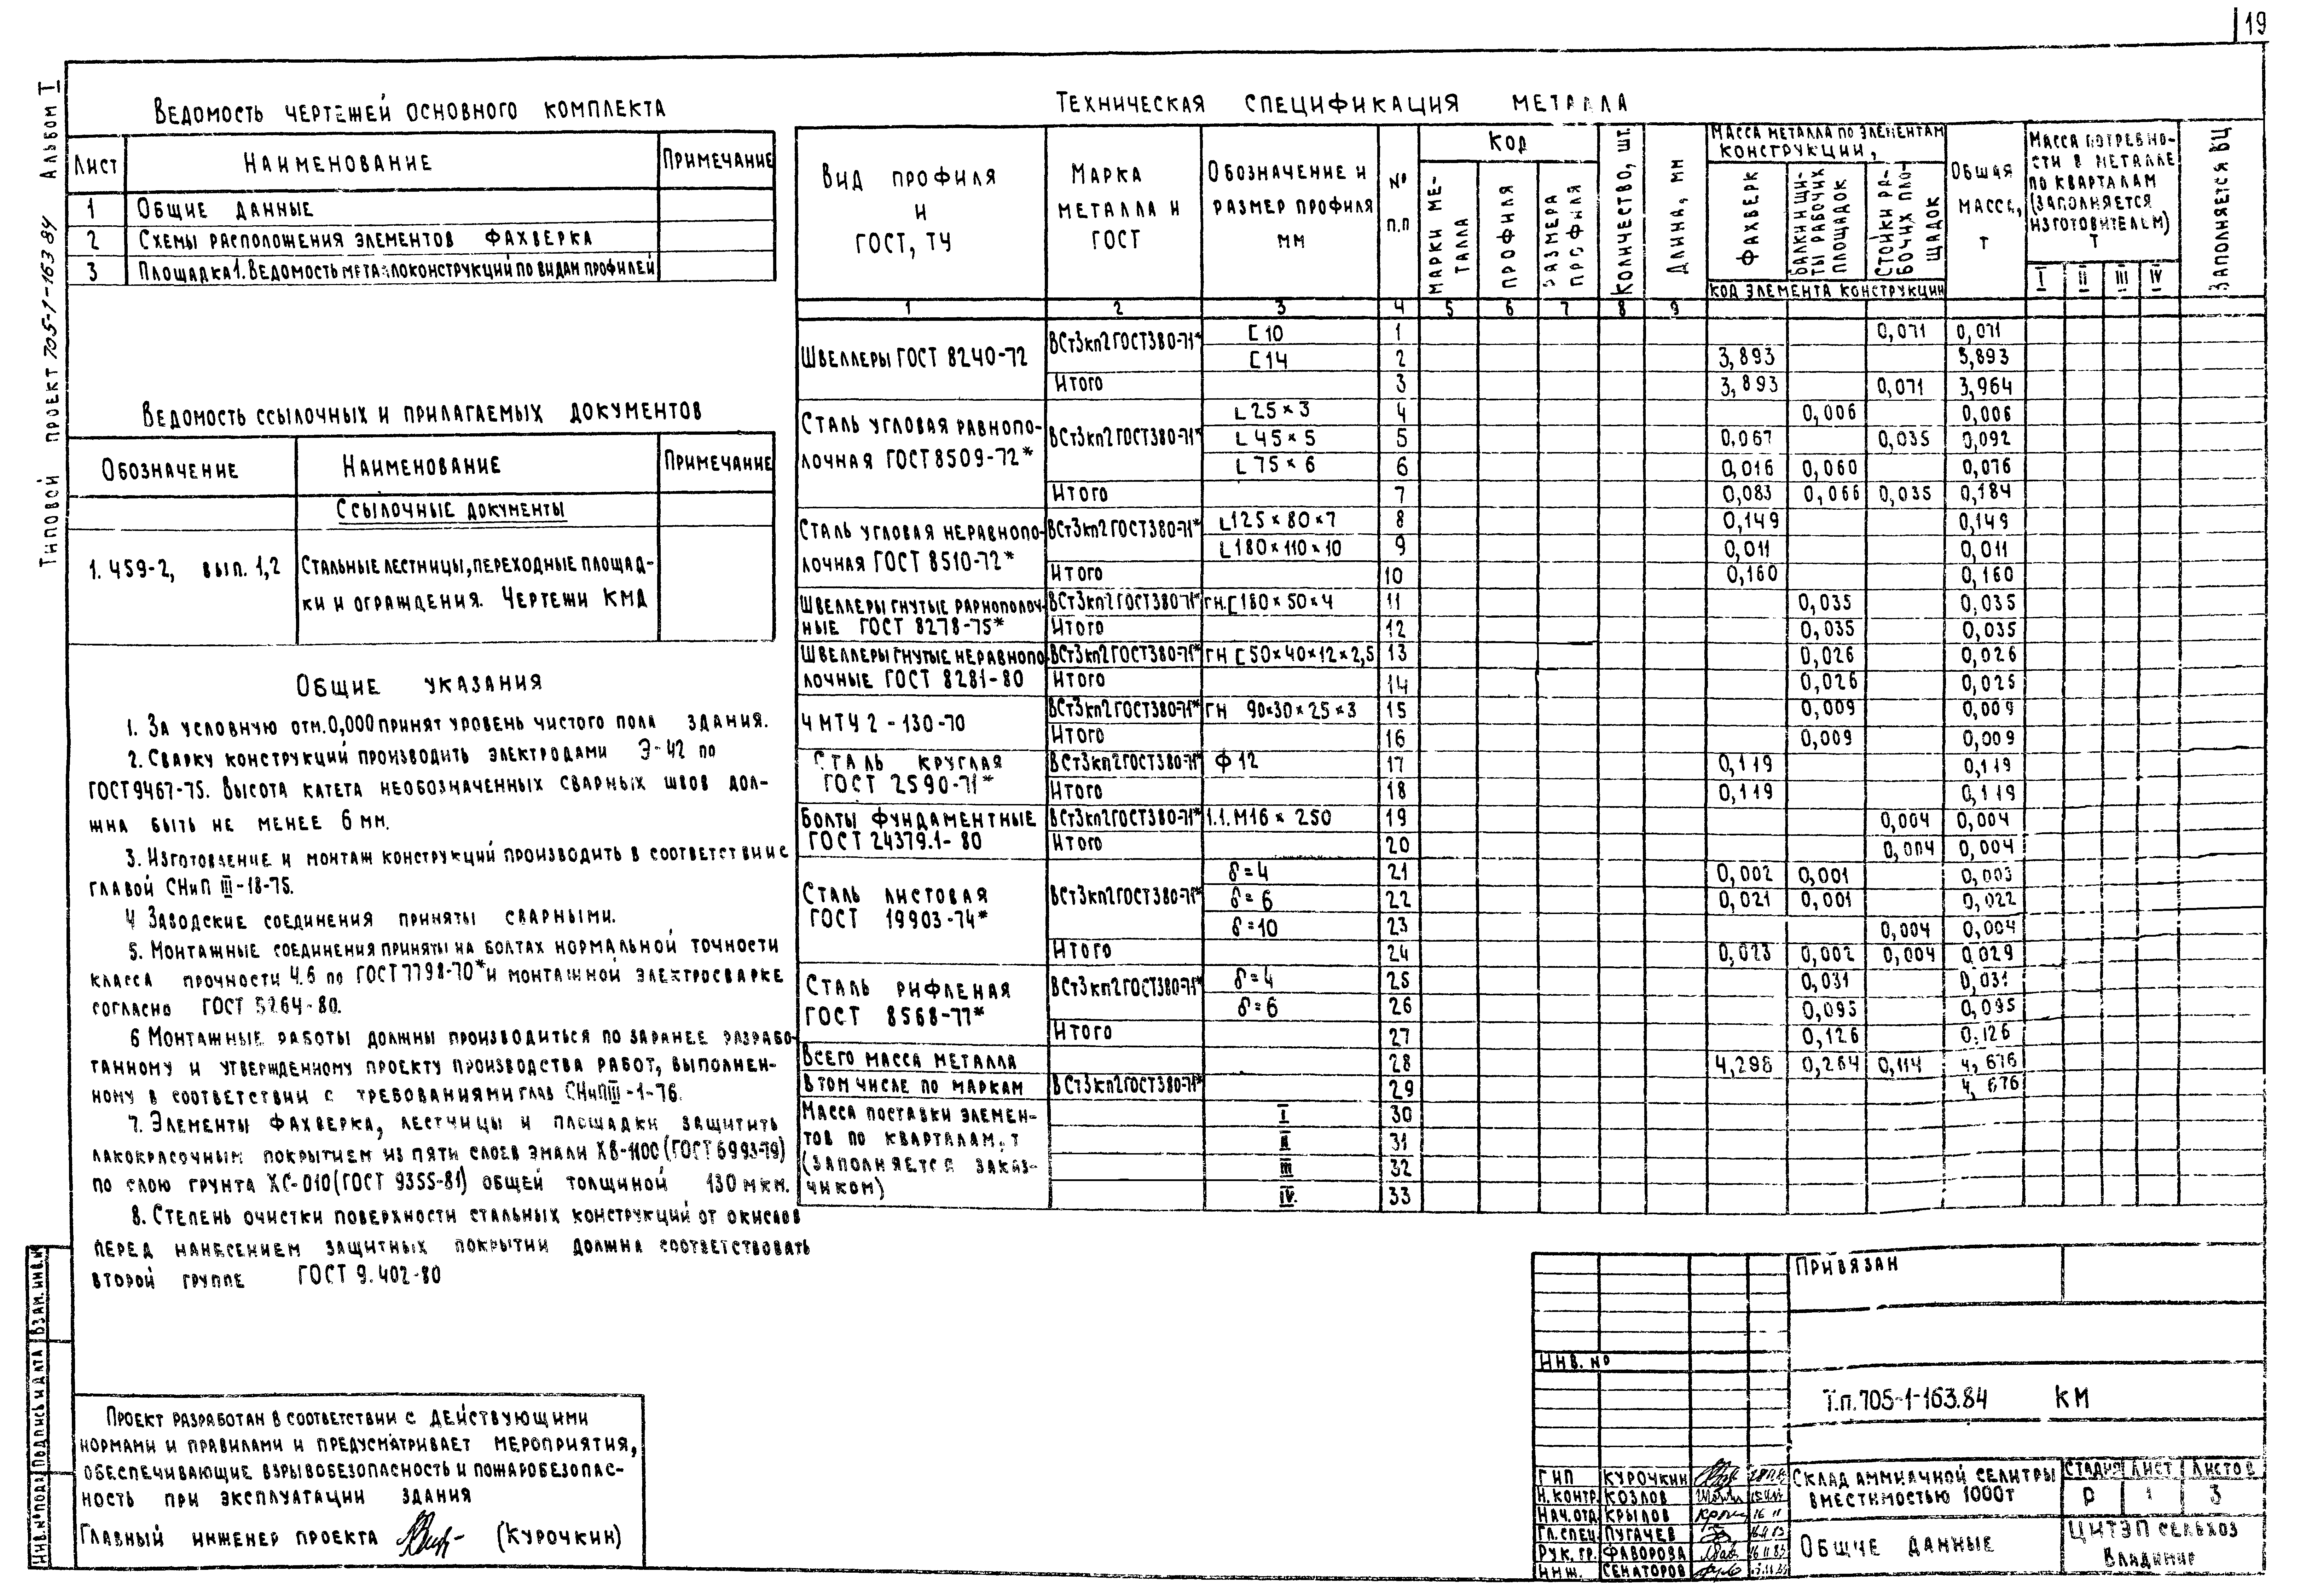 19
Типовой проект 705-1-163 84 Альбом I
Ведомость чертежей основного комплекта
Лист Наименование Примечание
1 Общие данные
2 Схемы расположения элементов фахверка
3 Площадка 1. Ведомость металлоконструкций по видам профилей
Ведомость ссылочных и прилагаемых документов
Обозначение Наименование Примечание
Ссылочные документы
1.459-2, вып. 1,2 Стальные лестницы, переходные площад-
ки и ограждения. Чертежи КМД
Общие указания
1. За условную отм. 0,000 принят уровень чистого пола здания.
2. Сварку конструкций производить электродами Э-42 по
ГОСТ 9467-75. Высота катета необозначенных сварных швов дол-
жна быть не менее 6 мм.
3. Изготовление и монтаж конструкций производить в соответствии с
главой СНиП III-18-75.
4 Заводские соединения приняты сварными.
5. Монтажные соединения приняты на болтах нормальной точности
класса прочности 4.6 по ГОСТ 7798-70* и монтажной электросварке
согласно ГОСТ 5264-80.
6 Монтажные работы должны производиться по заранее разрабо-
танному и утвержденному проекту производства работ, выполнен-
ному в соответствии с требованиями глав СНиП III-1-76.
7. Элементы фахверка, лестницы и площадки защитить
лакокрасочным покрытием из пяти слоев эмали ХВ-1100 (ГОСТ 6993-79)
по слою грунта ХС-010 (ГОСТ 9355-81) общей толщиной 130 мкм.
8. Степень очистки поверхности стальных конструкций от окислов
перед нанесением защитных покрытий должна соответствовать
второй группе ГОСТ 9.402-80
Проект разработан в соответствии с действующими
нормами и правилами и предусматривает мероприятия,
обеспечивающие взрывобезопасность и пожаробезопас-
ность при эксплуатации здания
Главный инженер проекта (Курочкин)
Инв. № подл. Подпись и дата Взам. инв. №
Техническая спецификация металла
Вид профиля и ГОСТ, ТУ
Марка металла и ГОСТ
Обозначение и размер профиля мм
№ п.п
Код
Марки металла
Профиля
Размера профиля
Количество, шт.
Длина, мм
Масса металла по элементам конструкции,
Фахверк
Балки и щиты рабочих площадок
Стойки рабочих площадок
Код элемента конструкции
Общая масса, т
Масса потребности в металле по кварталам (заполняется изготовителем) т
I II III IV
Заполняется ВЦ
1 2 3 4 5 6 7 8 9
Швеллеры ГОСТ 8240-72 ВСт3кп2 ГОСТ380-71* [ 10 1 0,071 0,071
[ 14 2 3,893 3,893
Итого 3 3,893 0,071 3,964
Сталь угловая равнопо-
лочная ГОСТ 8509-72* ВСт3кп2 ГОСТ380-71* L 25×3 4 0,006 0,006
L 45×5 5 0,067 0,035 0,092
L 75×6 6 0,016 0,060 0,076
Итого 7 0,083 0,066 0,035 0,184
Сталь угловая неравнопо-
лочная ГОСТ 8510-72* ВСт3кп2 ГОСТ380-71* L125×80×7 8 0,149 0,149
L180×110×10 9 0,011 0,011
Итого 10 0,160 0,160
Швеллеры гнутые равнополоч-
ные ГОСТ 8278-75* ВСт3кп2 ГОСТ380-71* гн.[ 180×50×4 11 0,035 0,035
Итого 12 0,035 0,035
Швеллеры гнутые неравнопо-
лочные ГОСТ 8281-80 ВСт3кп2 ГОСТ380-71* гн [ 50×40×12×2,5 13 0,026 0,026
Итого 14 0,026 0,025
ЧМТУ 2-130-70 ВСт3кп2 ГОСТ380-71* гн 90×30×25×3 15 0,009 0,009
Итого 16 0,009 0,009
Сталь круглая
ГОСТ 2590-71* ВСт3кп2 ГОСТ380-71* Ф 12 17 0,119 0,119
Итого 18 0,119 0,119
Болты фундаментные
ГОСТ 24379.1-80 ВСт3кп2 ГОСТ380-71* 1.1.М16×250 19 0,004 0,004
Итого 20 0,004 0,004
Сталь листовая
ГОСТ 19903-74* ВСт3кп2 ГОСТ380-71* δ=4 21 0,002 0,001 0,003
δ=6 22 0,021 0,001 0,022
δ=10 23 0,004 0,004
Итого 24 0,023 0,002 0,004 0,029
Сталь рифленая
ГОСТ 8568-77* ВСт3кп2 ГОСТ380-71* δ=4 25 0,031 0,031
δ=6 26 0,095 0,095
Итого 27 0,126 0,126
Всего масса металла 28 4,298 0,264 0,114 4,676
В том числе по маркам ВСт3кп2 ГОСТ380-71* 29 4,676
Масса поставки элемен-
тов по кварталам, т
(заполняется заказ-
чиком)
I 30
II 31
III 32
IV. 33
Привязан
Инв. №
Т.п. 705-1-163.84 КМ
ГИП Курочкин
Н. контр. Козлов
Нач. отд Крылов
Гл. спец. Пугачев
Рук. гр. Фаворова
Инж. Сенаторов
Склад аммиачной селитры
вместимостью 1000т
Стадия Лист Листов
Р 1 3
Общие данные
ЦИТЭПсельхоз
Владимир